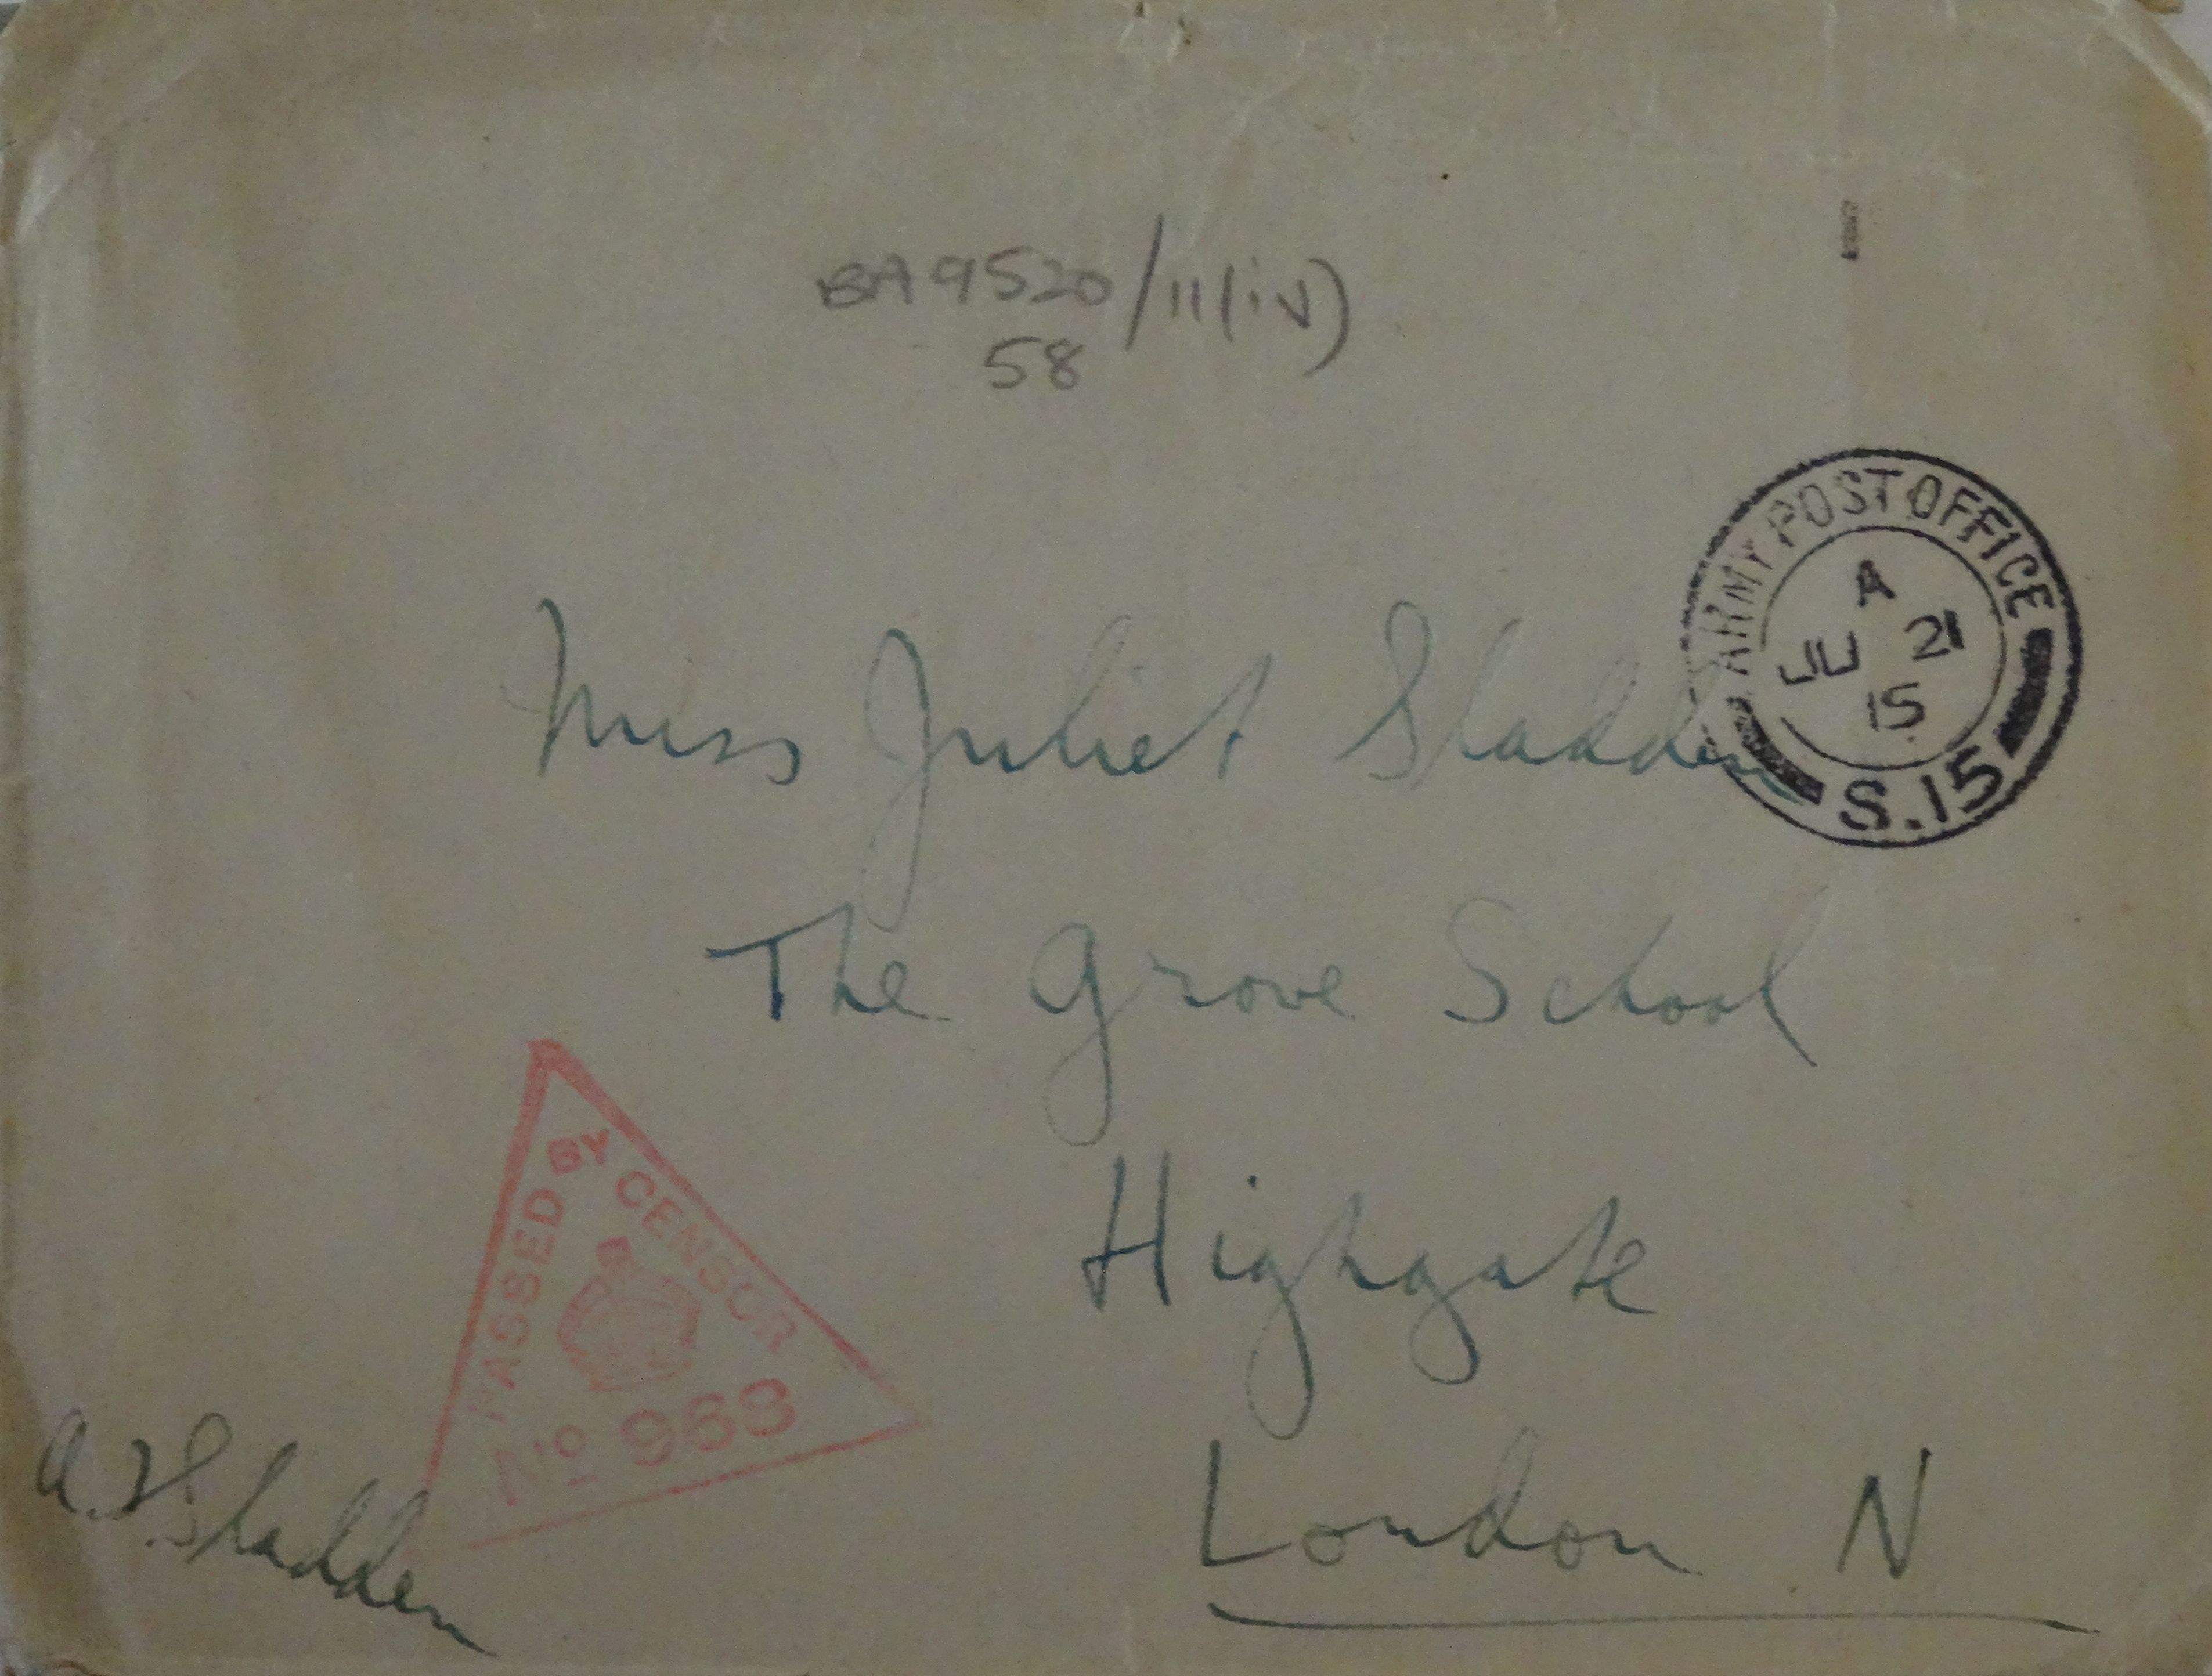 BA9520/11(iv)
58
ARMY POST OFFICE
A
JU 21
15
S.15
Miss Juliet Sladden
The Grove School
Highgate
London N
PASSED BY CENSOR
No 963
A.F. Sladden